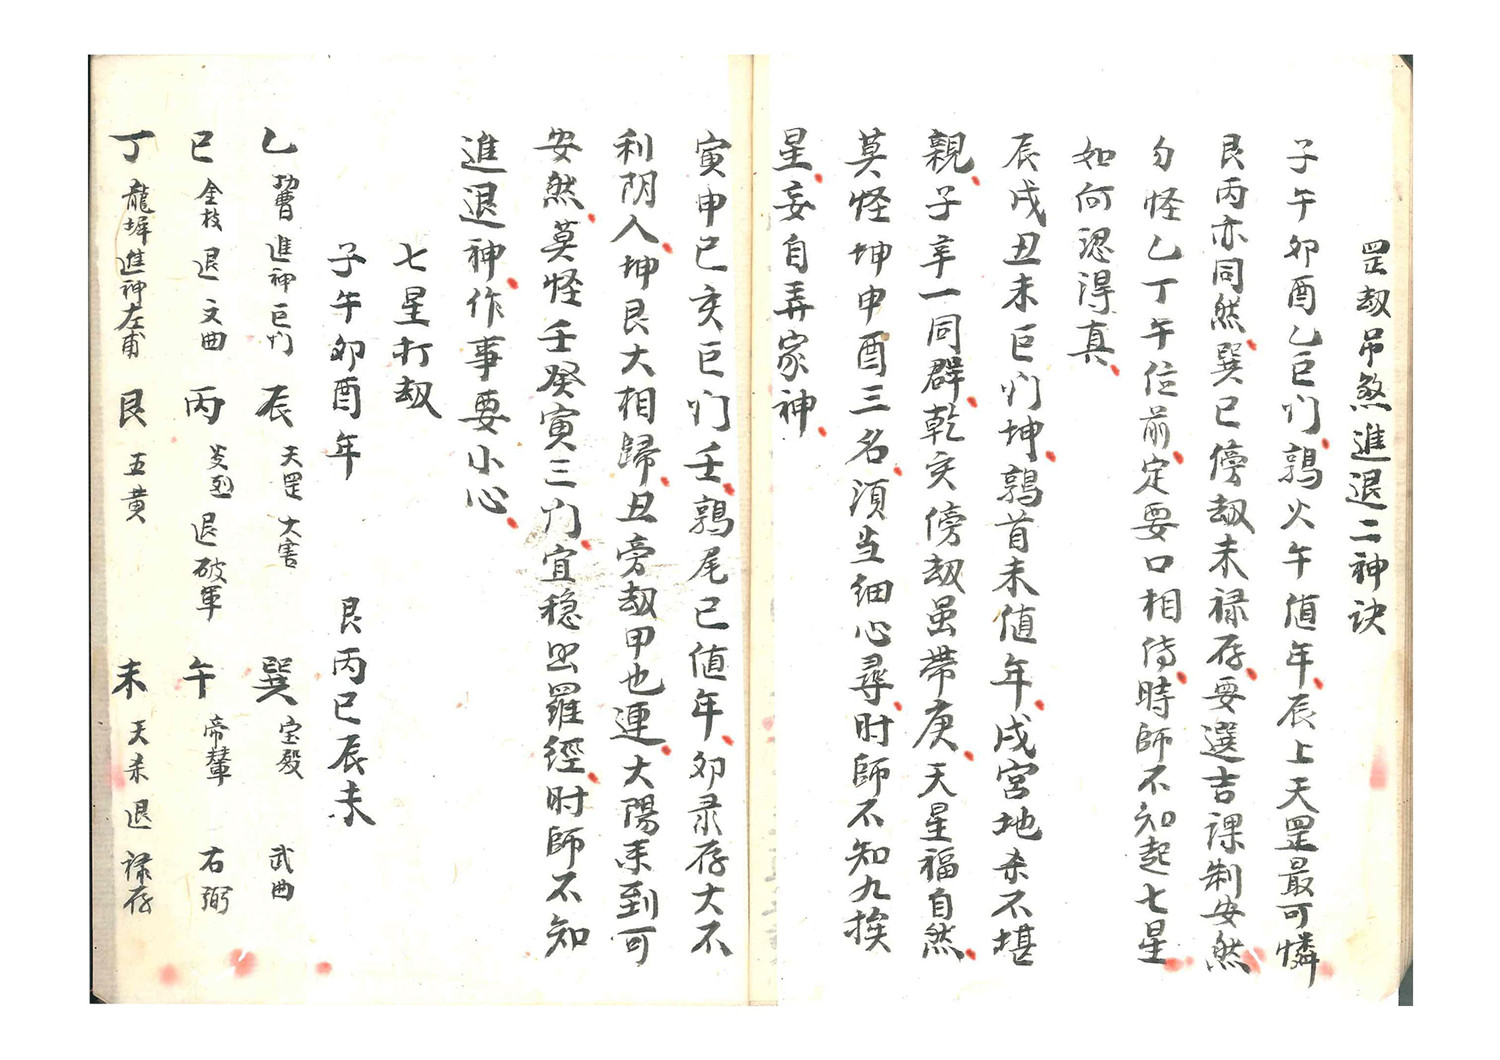 罡刼吊煞進退二神诀
子午卯酉乙巨门鶉火午値年辰上天罡最可憐
艮丙亦同然巽巳傍刼未禄存要選吉課制安然
勿怪乙丁午位前定要口相侍時師不知起七星
如何認得真
辰戌丑未巨门坤鶉首未値年戌宮地杀不堪
親子辛一同群乾亥傍刼虽帶庚天星福自然
莫怪坤申酉三名須当细心尋时師不知九挨
星妄自弄家神
寅申巳亥巨们壬鶉尾巳値年卯录存大不
利阴人坤艮大相歸丑旁刼甲也連大陽未到可
安然莫怪壬癸寅三门宜穏羅經时師不知
進退神作事要小心
七星打刼
子午卯酉年 艮丙巳辰未
乙 進神巨门 辰 天罡大害 巽 宝殿 武曲
巳 金枝 退 文曲 丙 退破軍 午 帝輦 右弼
丁 龍墀進神左甫 艮 五黄 未 天杀退 禄存